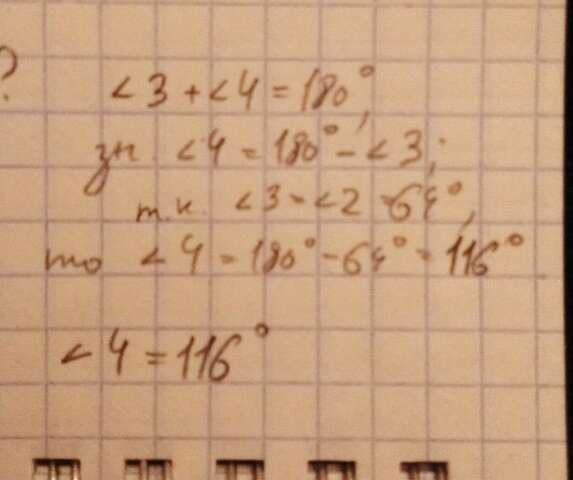 ?
∠3 + ∠4 = 180°,
зн. ∠4 = 180° - ∠3;
т.к. ∠3 = ∠2 = 64°,
то ∠4 = 180° - 64° = 116°
∠4 = 116°